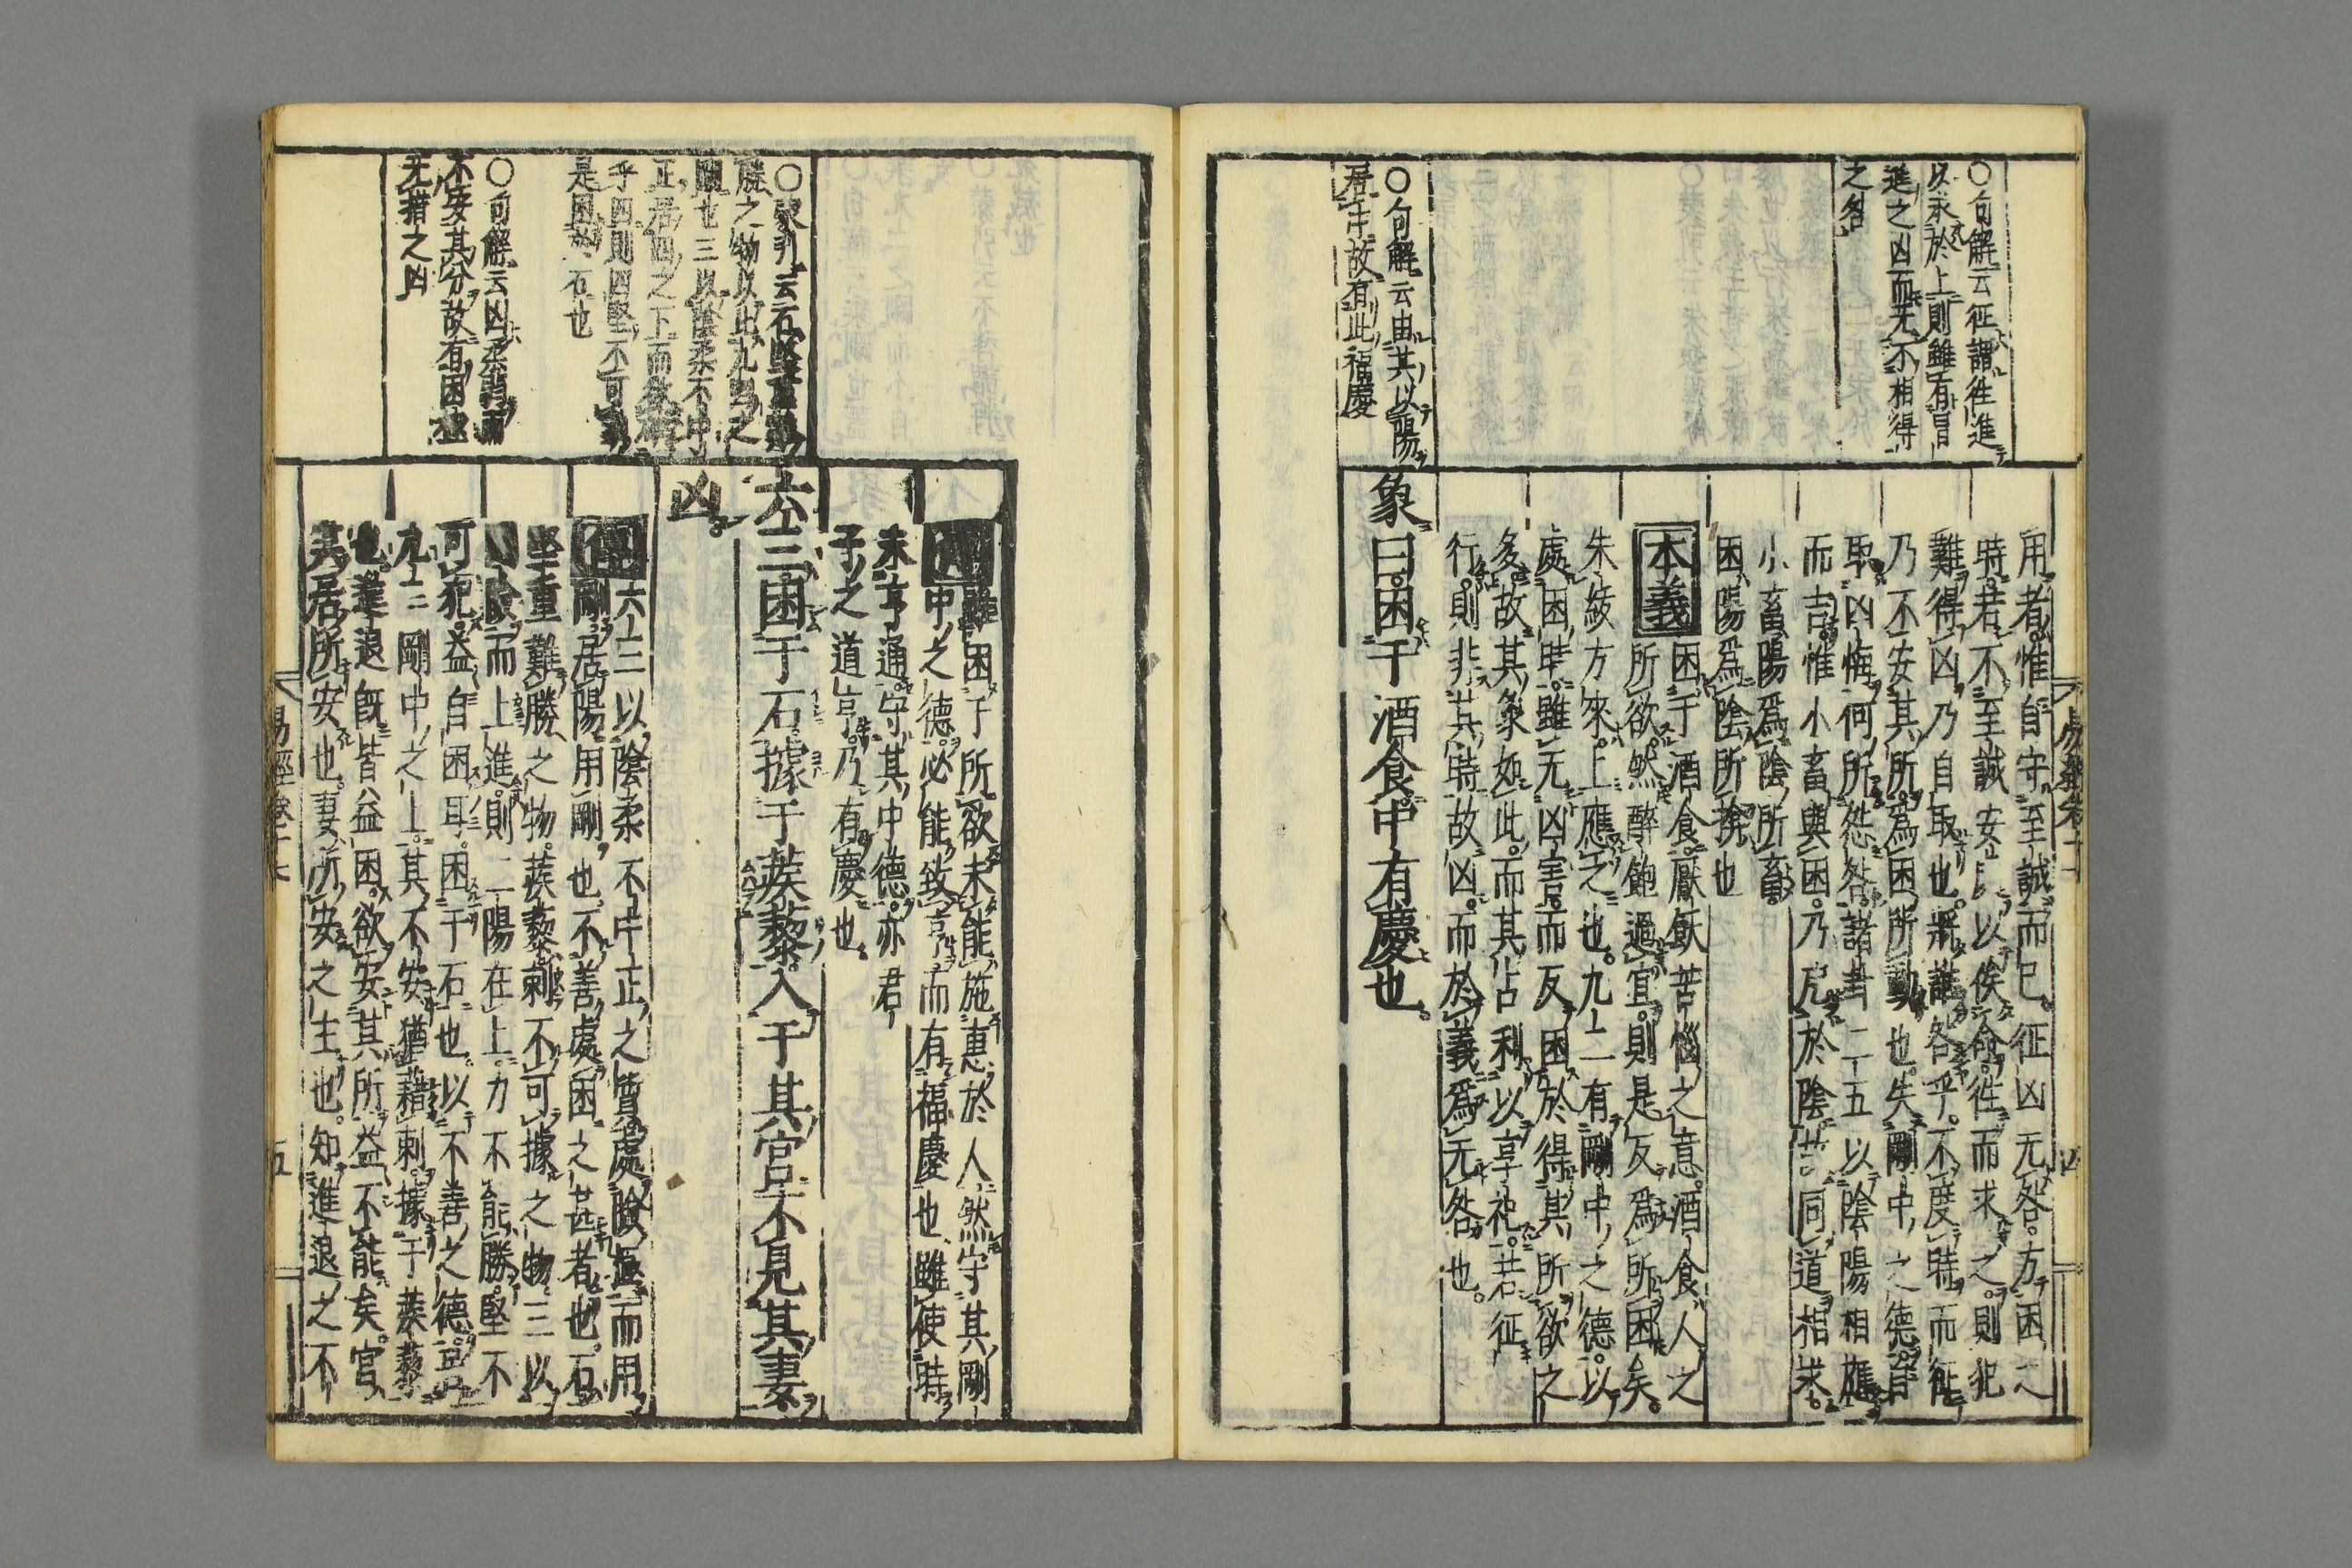 ○句解云征謂往進
以求於上則雖有冒
進之凶而无不相得
之咎
○句解云由其以陽
居中故有此福慶
用者惟自守至誠而已征凶无咎方困之
時若不至誠安以俟命往而求之則犯
難得凶乃自取也將誰咎乎不度時而征
乃不安其所爲困所動也失剛中之德自
取凶悔何所怨咎諸卦二五以陰陽相應
而吉惟小畜與困乃厄於陰故同道相求
小畜陽爲陰所畜
困陽爲陰所揜也
本義困于酒食厭飫苦惱之意酒食人之
所欲然醉飽過宜則是反爲所困矣
朱紱方來上應之也九二有剛中之德以
處困時雖无凶害而反困於得其所欲之
多故其象如此而其占利以享祀若征
行則非其時故凶而於義爲无咎也
象曰困于酒食中有慶也
○蒙引云石堅重難
勝之物以此九四之
剛也三以陰柔不中
正居四之下而欲
乎四則四堅不可
是困於石也
○句解云凶柔弱而
不安其分故有困極
无措之凶
雖困于所欲未能施惠於人然守其剛
中之德必能致亨而有福慶也雖使時
未亨通守其中德亦君
子之道亨乃有慶也
六三困于石據于蒺藜入于其宮不見其妻
凶
傳六三以陰柔不中正之質處險極而用
剛居陽用剛也不善處困之甚者也石
堅重難勝之物蒺藜刺不可據之物三以
險而上進則二陽在上力不能勝堅不
可犯益自困耳困于石也以不善之德居
九二剛中之上其不安猶藉刺據于蒺藜
也進退既皆益困欲安其所益不能矣宮
其居所安也妻所安之主也知進退之不
易經卷十七
五